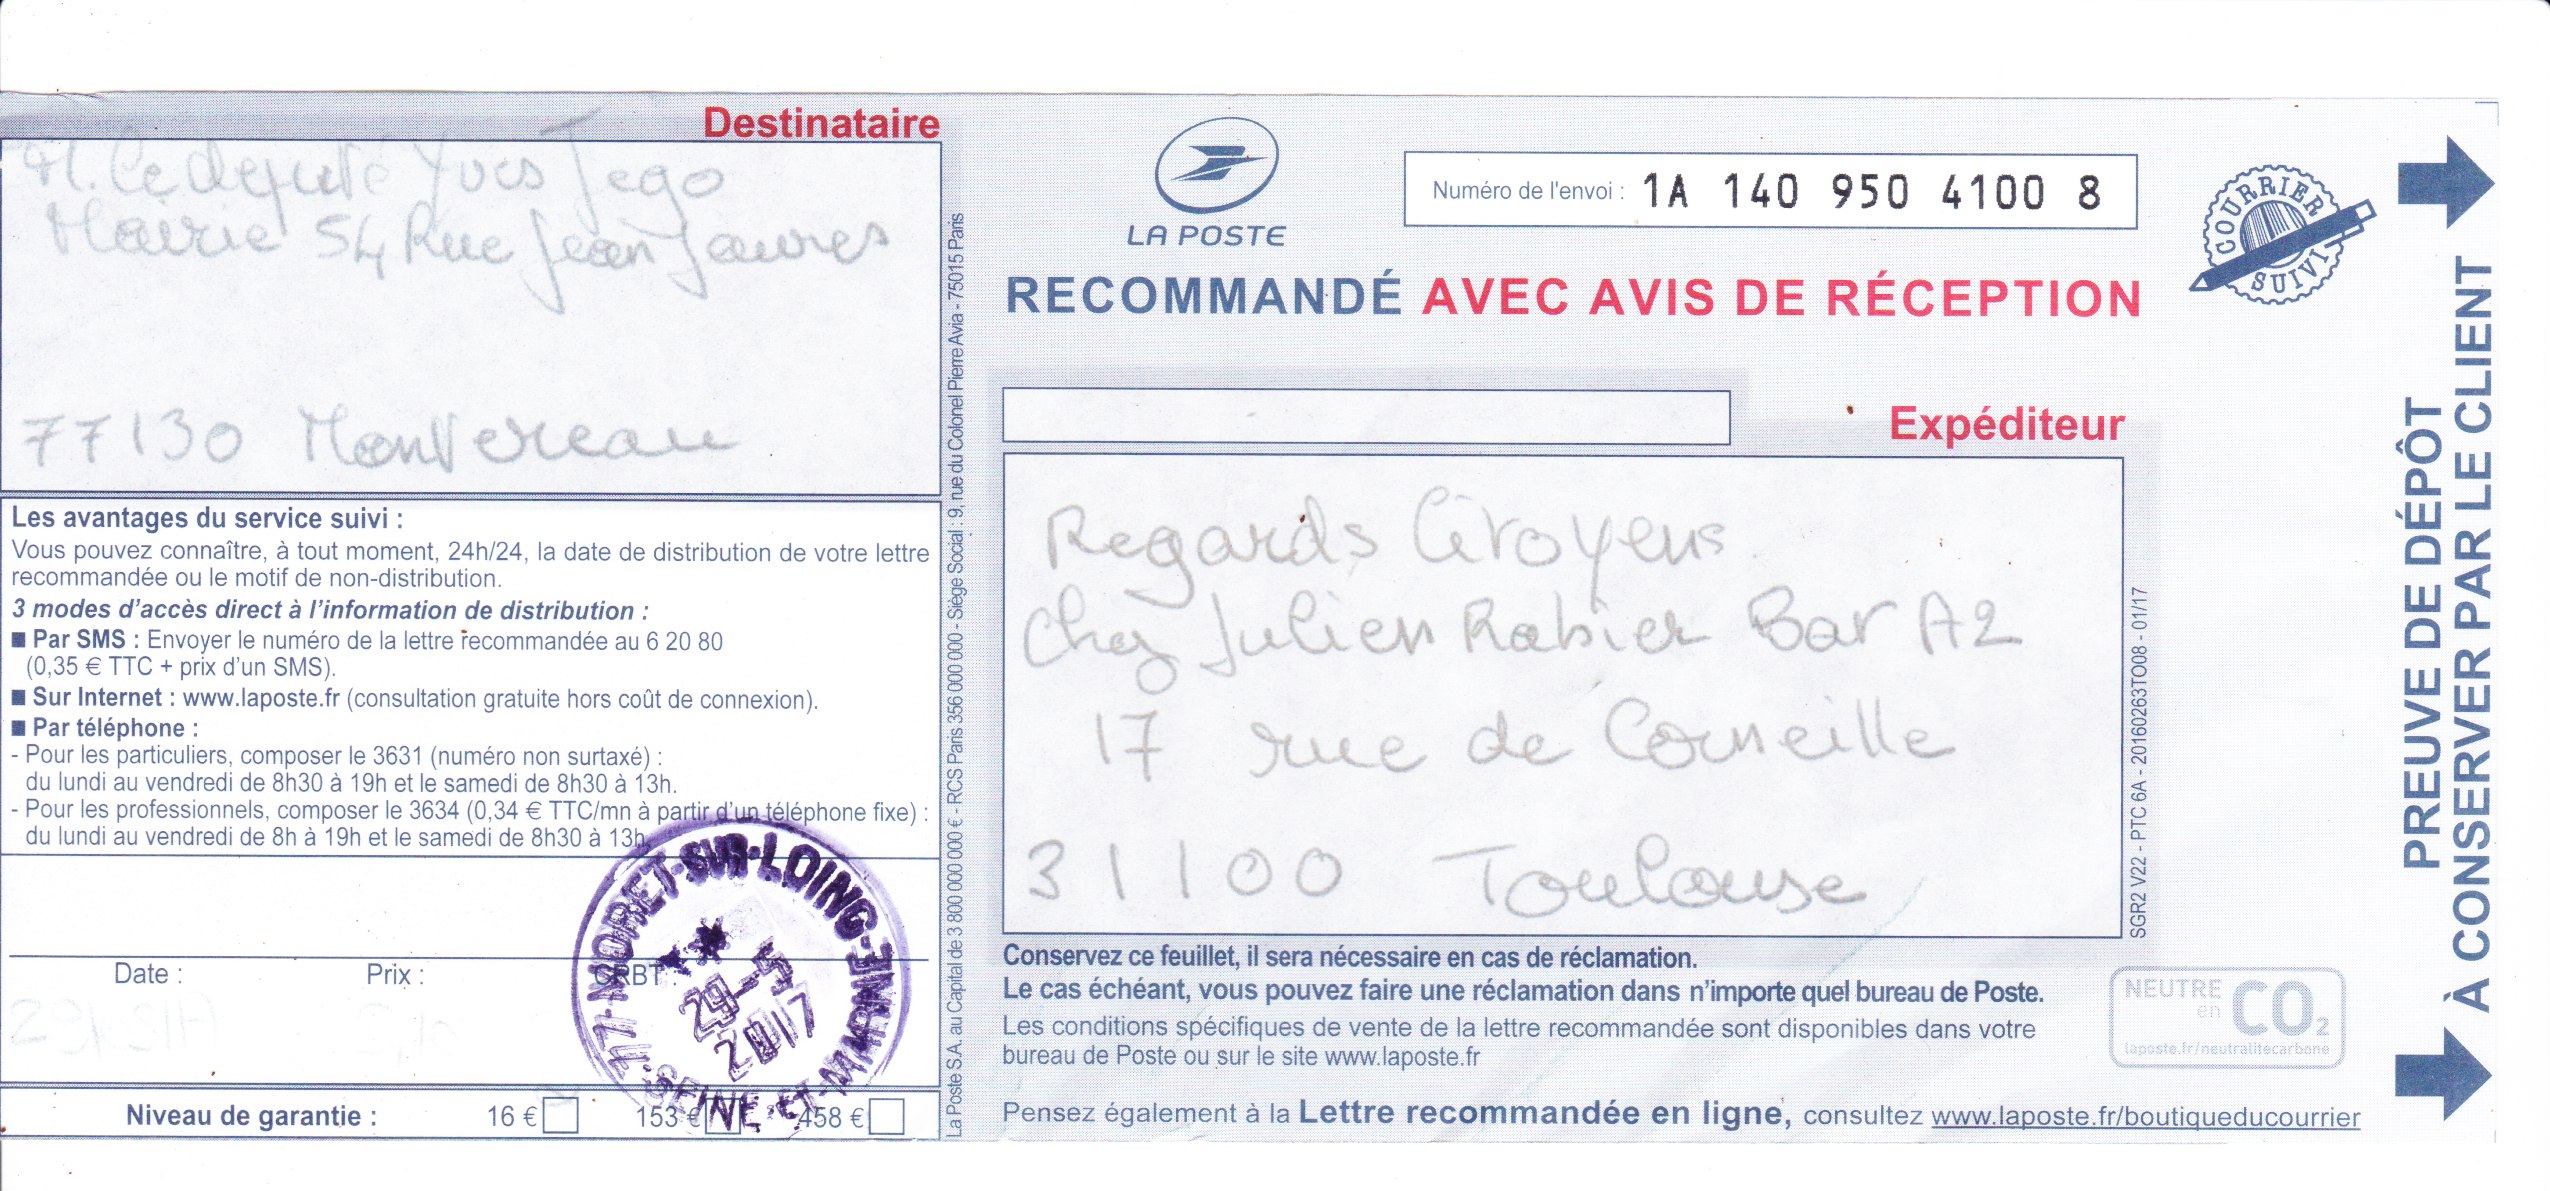 Destinataire
M. le député Yves Jego
Mairie 54 Rue Jean Jaures
77130 Montereau
Les avantages du service suivi :
Vous pouvez connaître, à tout moment, 24h/24, la date de distribution de votre lettre
recommandée ou le motif de non-distribution.
3 modes d'accès direct à l'information de distribution :
■ Par SMS : Envoyer le numéro de la lettre recommandée au 6 20 80
(0,35 € TTC + prix d'un SMS).
■ Sur Internet : www.laposte.fr (consultation gratuite hors coût de connexion).
■ Par téléphone :
- Pour les particuliers, composer le 3631 (numéro non surtaxé) :
du lundi au vendredi de 8h30 à 19h et le samedi de 8h30 à 13h.
- Pour les professionnels, composer le 3634 (0,34 € TTC/mn à partir d'un téléphone fixe) :
du lundi au vendredi de 8h à 19h et le samedi de 8h30 à 13h.
Date : Prix : CRBT :
77-MORET-SUR-LOING-SEINE-ET-MARNE
29-5
2017
Niveau de garantie : 16 € 153 € 458 €
La Poste S.A. au Capital de 3 800 000 000 € - RCS Paris 356 000 000 - Siège Social : 9, rue du Colonel Pierre Avia - 75015 Paris
LA POSTE
Numéro de l'envoi : 1A 140 950 4100 8
COURRIER SUIVI
RECOMMANDÉ AVEC AVIS DE RÉCEPTION
Expéditeur
Regards Citoyens
Chez Julien Rabier Bat A2
17 rue de Corneille
31100 Toulouse
SGR2 V22 - PTC 6A - 20160263TO08 - 01/17
Conservez ce feuillet, il sera nécessaire en cas de réclamation.
Le cas échéant, vous pouvez faire une réclamation dans n'importe quel bureau de Poste.
Les conditions spécifiques de vente de la lettre recommandée sont disponibles dans votre
bureau de Poste ou sur le site www.laposte.fr
NEUTRE
en CO2
laposte.fr/neutralitecarbone
Pensez également à la Lettre recommandée en ligne, consultez www.laposte.fr/boutiqueducourrier
PREUVE DE DÉPÔT
À CONSERVER PAR LE CLIENT